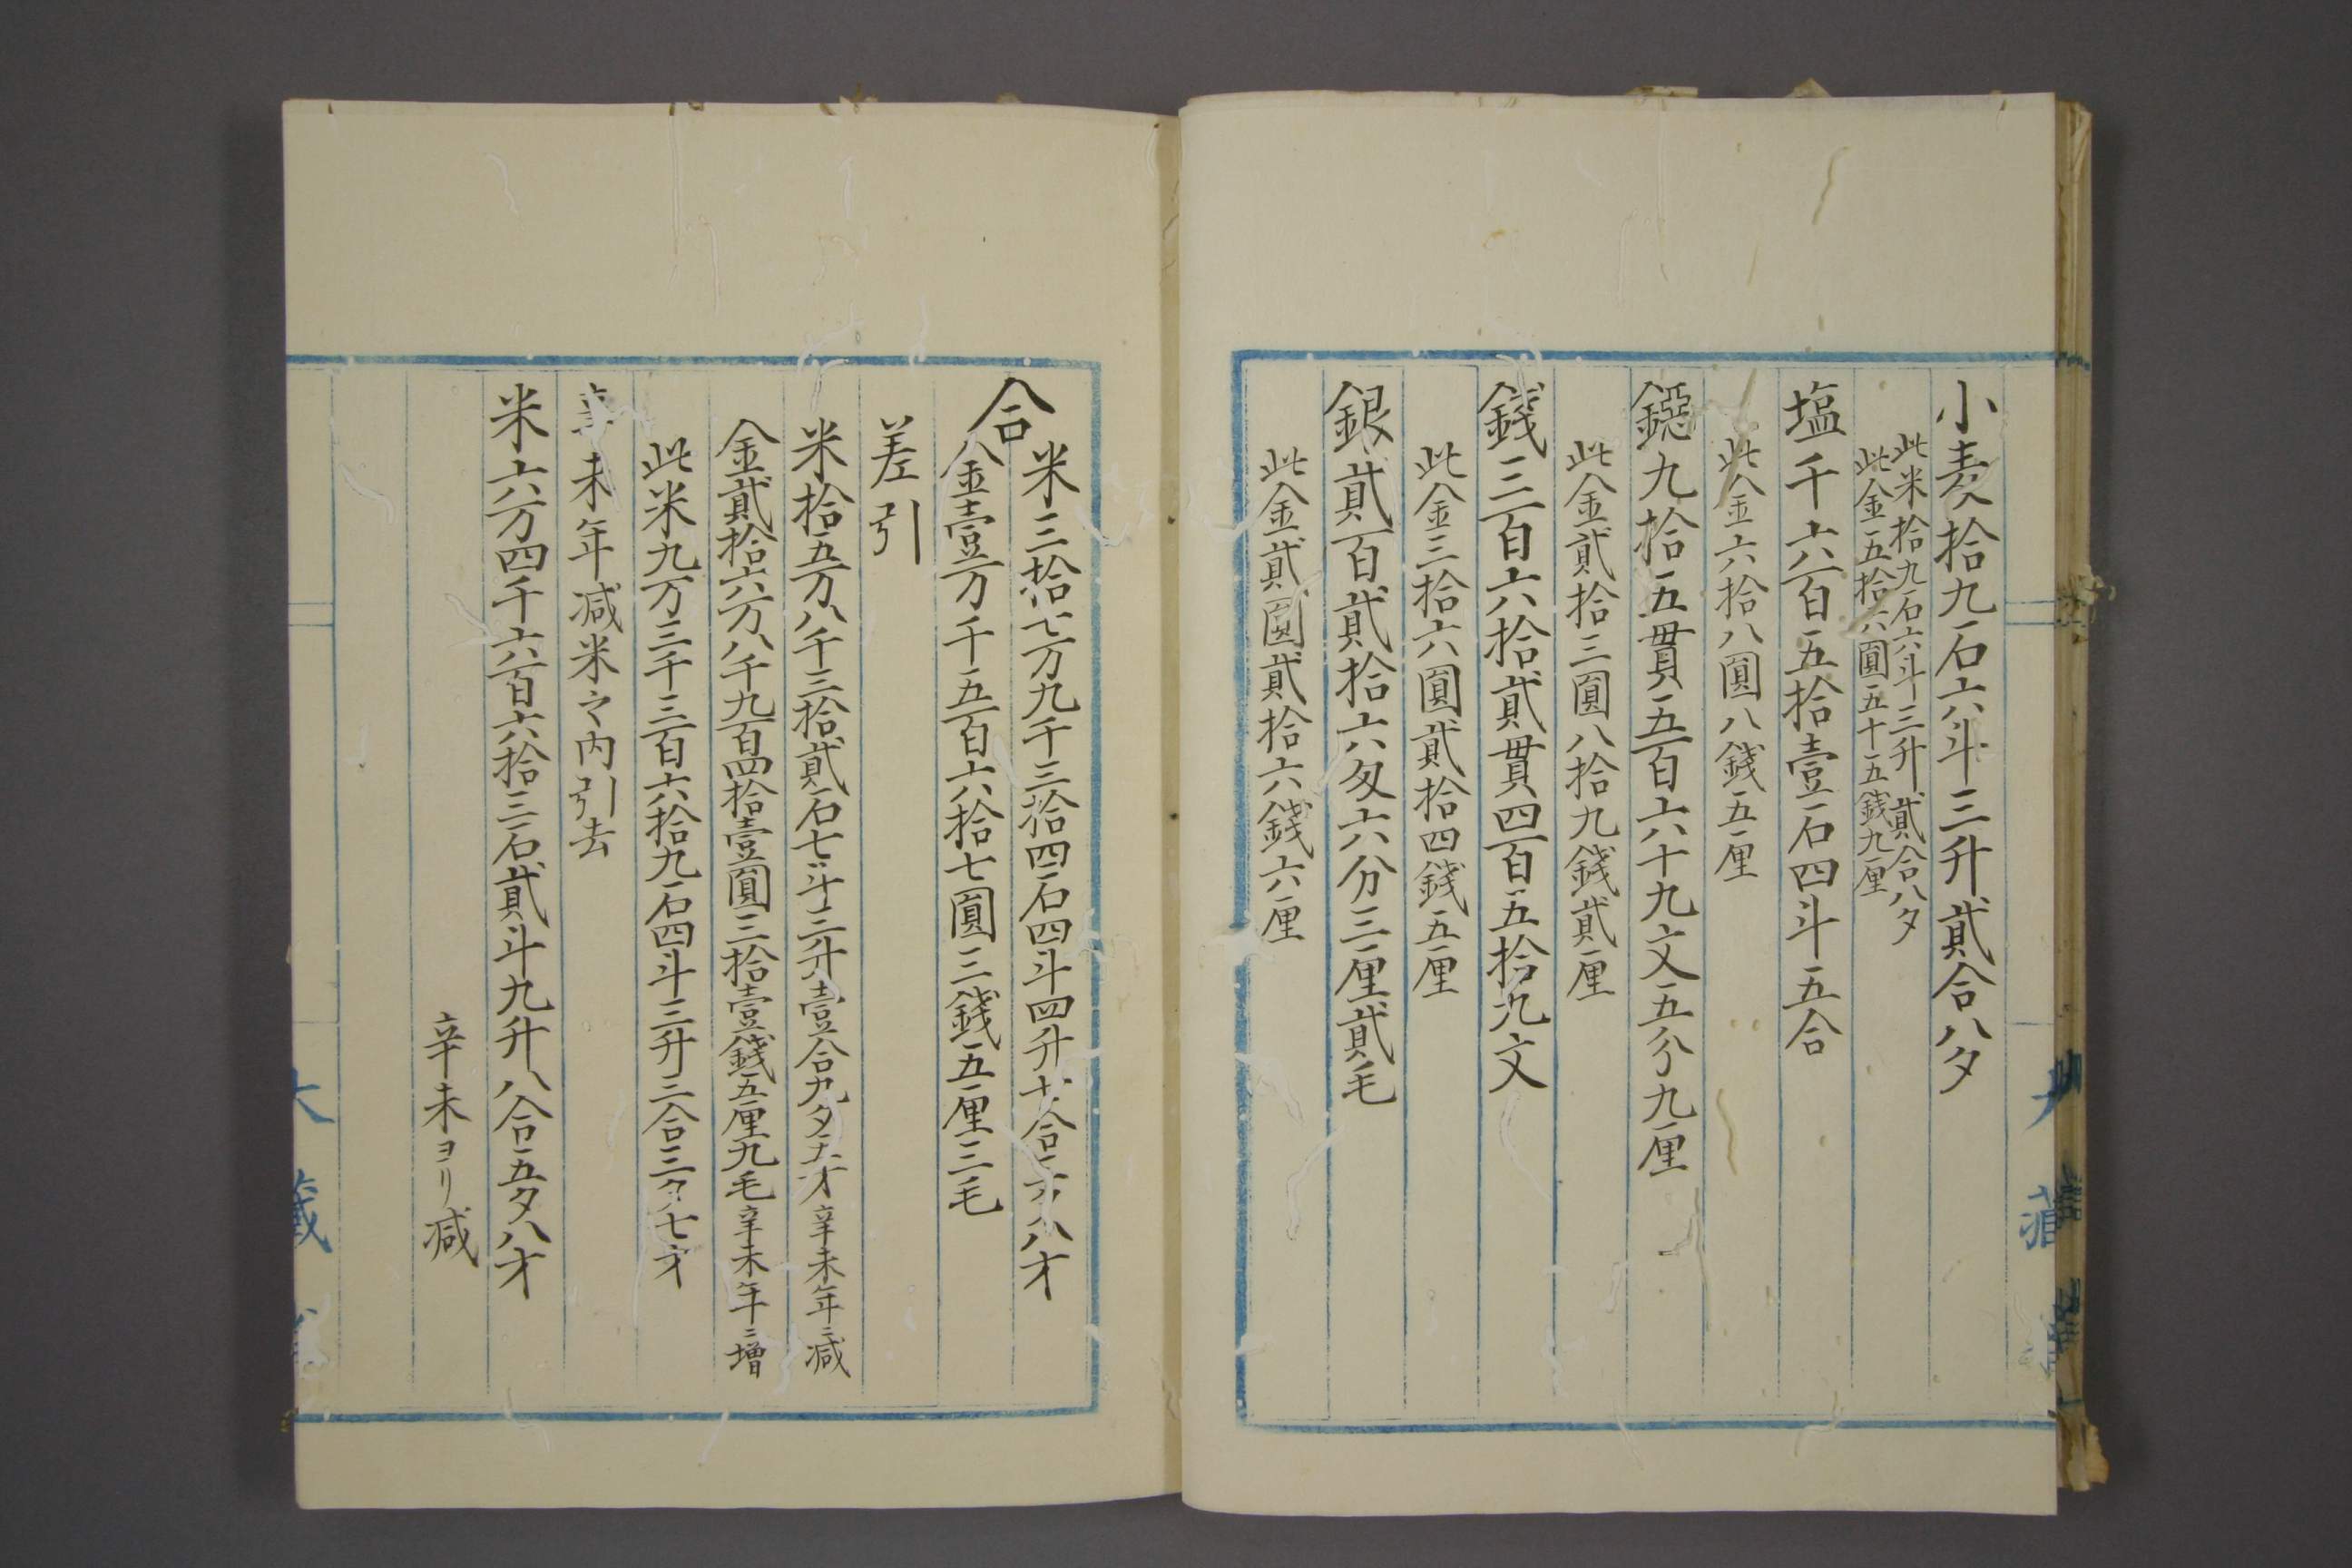 小麦拾九石六斗三升貳合八夕
此米拾九石六斗三升貳合八夕
此金五拾六圓五十五錢九厘
塩千六百五拾壹石四斗五合
此金六拾八圓八錢五厘
鐚九拾五貫五百六十九文五分九厘
此金貳拾三圓八拾九錢貳厘
錢三百六拾貳貫四百五拾九文
此金三拾六圓貳拾四錢五厘
銀貳百貳拾六匁六分三厘貳毛
此金貳圓貳拾六錢六厘
合
米三拾七万九千三拾四石四斗四升七合八才
金壹万千五百六拾七圓三錢五厘三毛
差引
米拾五万八千三拾貳石七斗三升壹合九夕五才辛未年ニ減
金貳拾六万八千九百四拾壹圓三拾壹錢五厘九毛辛未年ニ增
此米九万三千三百六拾九石四斗三升三合三夕七才
辛未年減米之内引去
米六万四千六百六拾三石貳斗九升八合五夕八才
辛未ヨリ減
大藏省